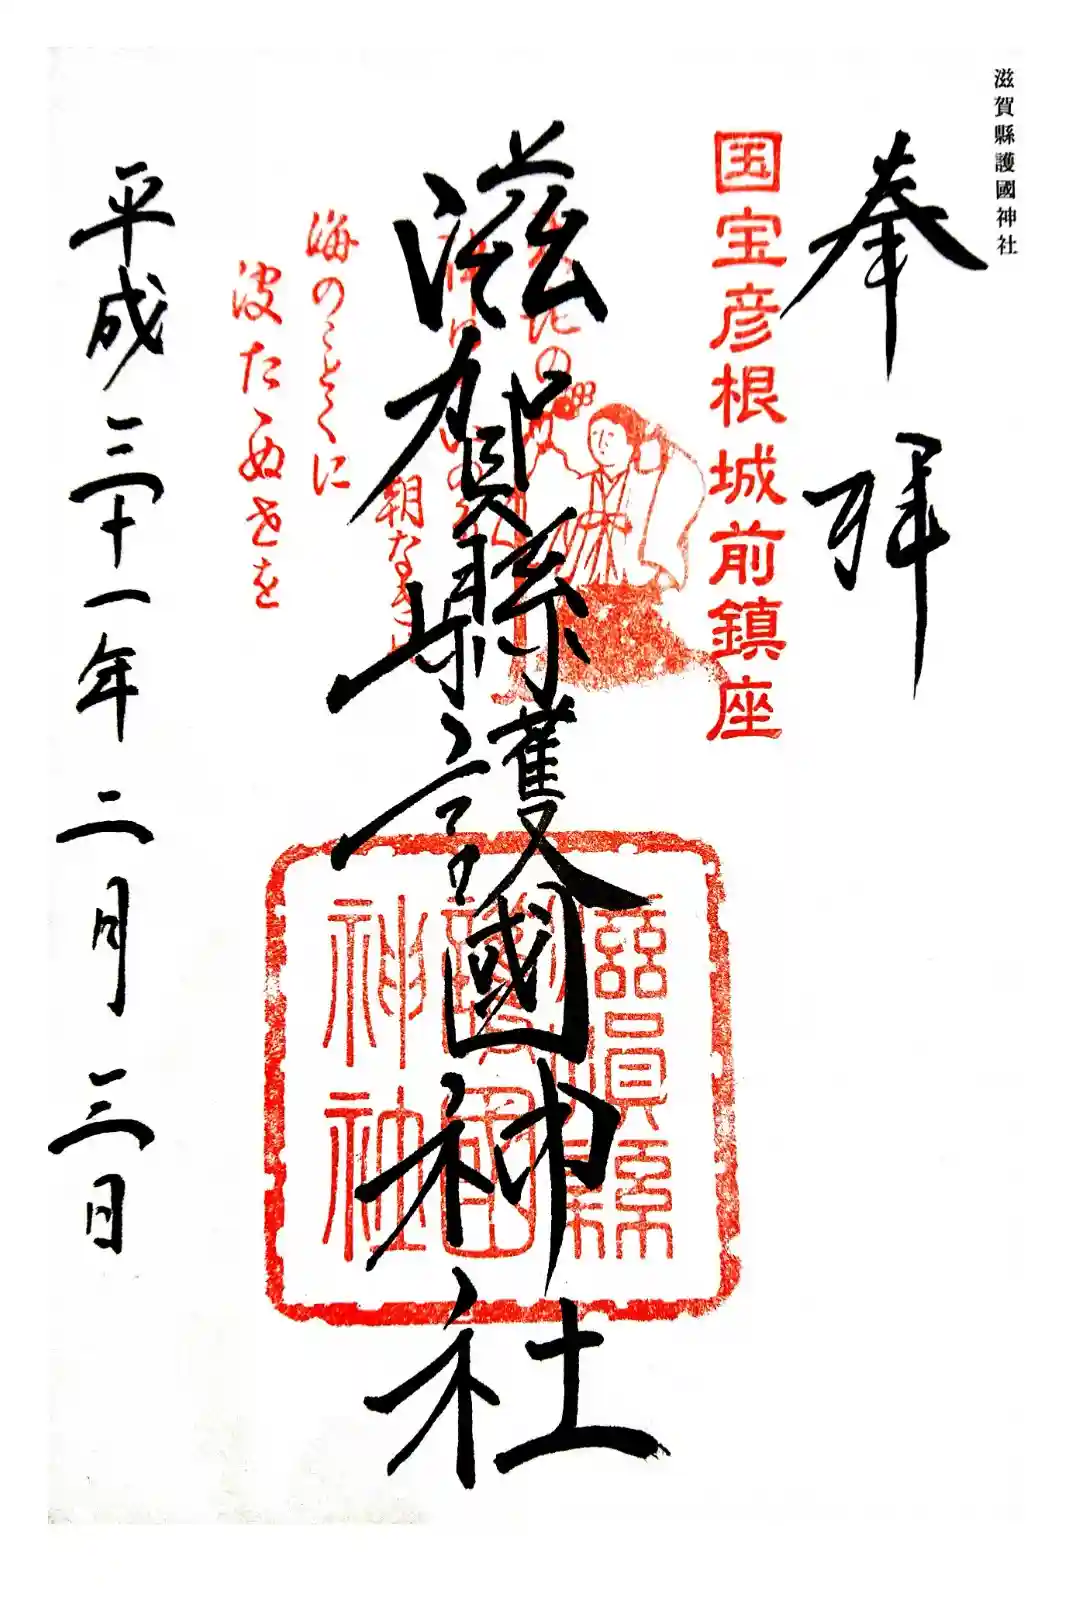 滋賀縣護國神社
奉拝
国宝彦根城前鎮座
滋賀縣護國神社
朝なき
海のことくに
波たゝぬ世を
滋賀縣
護國
神社
平成三十一年二月三日